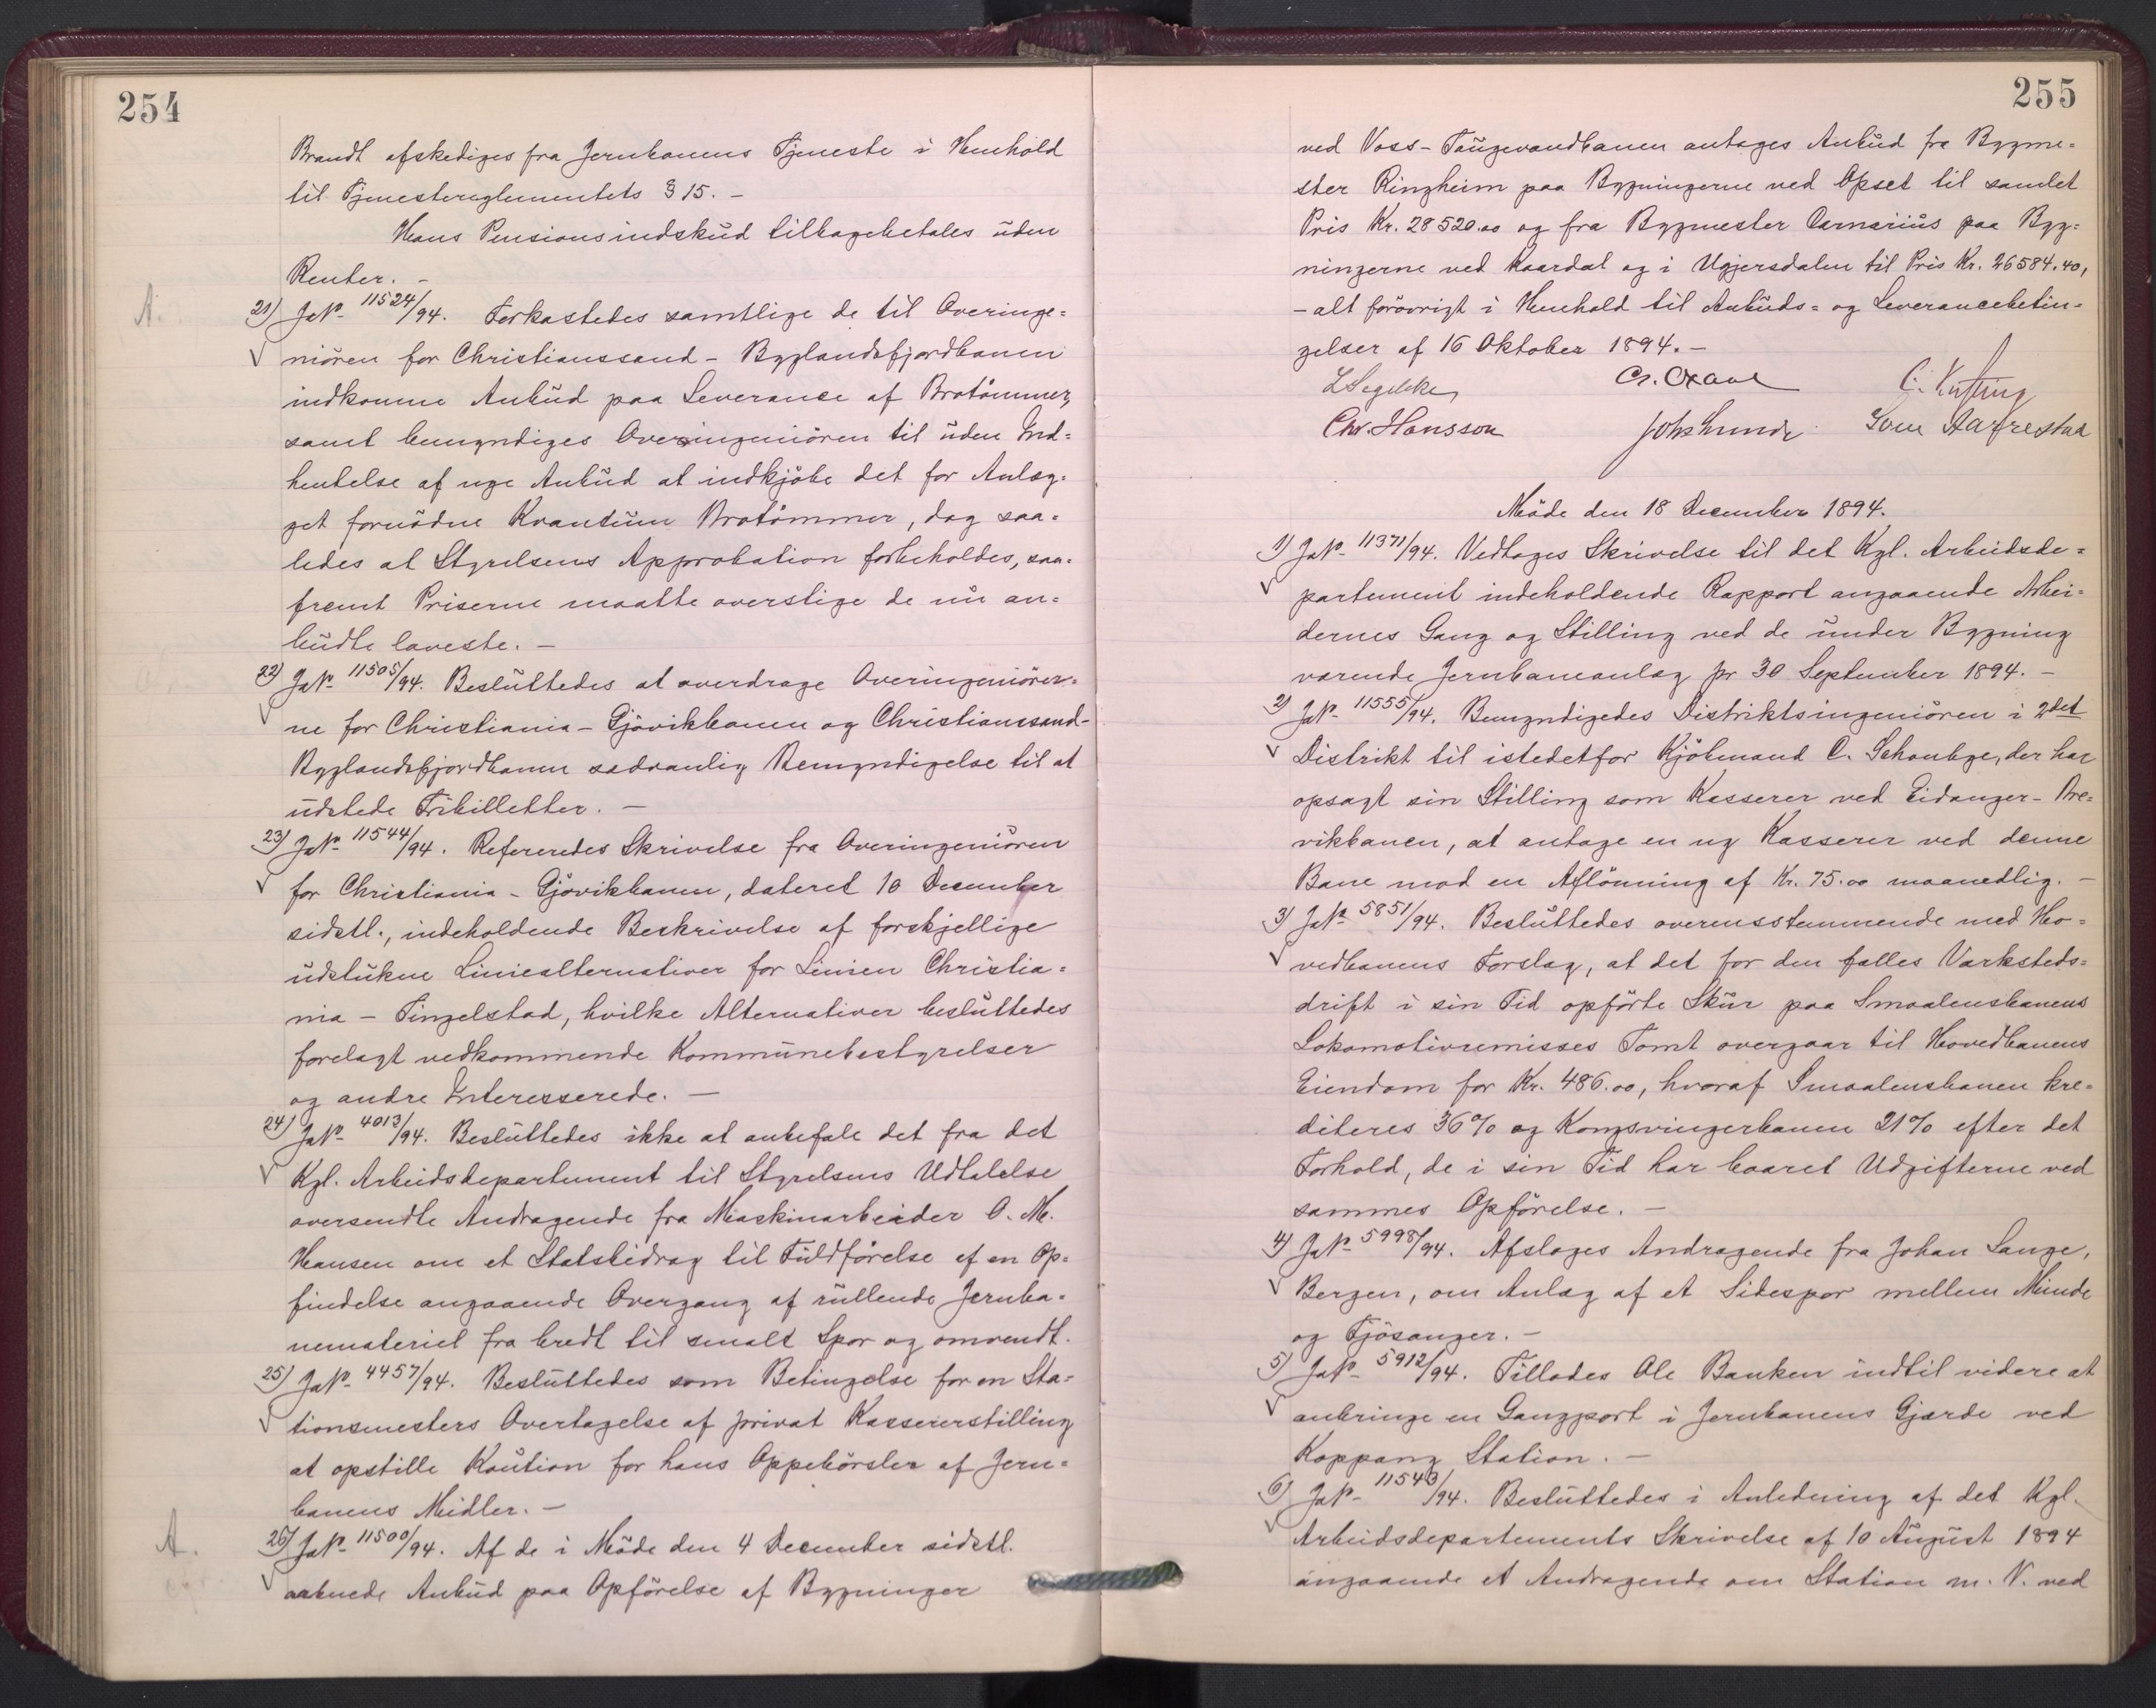 254
Brandt afskediges fra Jernbanens Tjeneste i Henhold
til Tjenestereglementets § 15. –
Hans Pensionsindskud tilbagebetales uden
Renter. –
A.
21) JN⁰ 11524/94. Forkastedes samtlige de til Overinge=
niören for Christianssand – Byglandsfjordbanen
indkomne Anbud paa Leverance af Brotömmer,
samt bemyndiges Overingeniören til uden Ind=
hentelse af nye Anbud at indkjöbe det for Anlæg=
get fornödne Kvantum Brotömmer, dog saa=
ledes at Styrelsens Approbation forbeholdes, saa=
fremt Priserne maatte overstige de nu an=
budte laveste. –
22) JN⁰ 11505/94. Besluttedes at overdrage Overingeniörer=
ne for Christiania – Gjövikbanen og Christianssand–
Byglandsfjordbanen sedvanlig Bemyndigelse til at
udstede Fribilletter. –
23) JN⁰ 11544/94. Refereredes Skrivelse fra Overingeniören
for Christiania – Gjövikbanen, dateret 10 December
sidstl., indeholdende Beskrivelse af forskjellige
udstukne Liniealternativer for Linien Christia=
nia – Tingelstad, hvilke Alternativer besluttedes
forelagt vedkommende Kommunebestyrelser
og andre Interesserede. –
24) JN⁰ 4013/94. Besluttedes ikke at anbefale det fra det
Kgl. Arbeidsdepartement til Styrelsens Udtalelse
oversendte Andragende fra Maskinarbeider O. M.
Hansen om et Statsbidrag til Fuldförelse af en Op=
findelse angaaende Overgang af rullende Jernba=
nemateriel fra bredt til smalt Spor og omvendt.
25) JN⁰ 4457/94. Besluttedes som Betingelse for en Sta=
tionsmesters Overtagelse af privat Kassererstilling
at opstille Kaution for hans Oppebörsler af Jern=
banens Midler. –
A.
26) JN⁰ 11500/94. Af de i Möde den 4 December sidstl.
aabnede Anbud paa Opförelse af Bygninger
255
ved Voss – Taugevandbanen antages Anbud fra Bygme=
ster Ringheim paa Bygningerne ved Opset til samlet
Pris Kr. 28520.00 og fra Bygmester Carnarius paa Byg=
ningerne ved Kaardal og i Ugjersdalen til Pris Kr. 26584.40,
– alt forövrigt i Henhold til Anbuds= og Leverancebetin=
gelser af 16 Oktober 1894. –
L Segelcke
Chr. Hansson
Joh Lunde
Sven Aarrestad
Möde den 18 December 1894.
1) JN⁰ 11371/94. Vedtoges Skrivelse til det Kgl. Arbeidsde=
partement indeholdende Rapport angaaende Arbei=
dernes Gang og Stilling ved de under Bygning
værende Jernbaneanlæg pr 30 September 1894. –
2) JN⁰ 11555/94. Bemyndigedes Distriktsingeniören i 2det
Distrikt til istedetfor Kjöbmand C. Schoubye, der har
opsagt sin Stilling som Kasserer ved Eidanger – Bre=
vikbanen, at antage en ny Kasserer ved denne
Bane mod en Aflönning af Kr. 75.00 maanedlig. –
3) JN⁰ 5851/94. Besluttedes overensstemmende med Ho=
vedbanens Forslag, at det for den fælles Værksteds=
drift i sin Tid opförte Skur paa Smaalensbanens
Lokomotivremisses Tomt overgaar til Hovedbanens
Eiendom for Kr. 486.00, hvoraf Smaalensbanen kre=
diteres 36% og Kongsvingerbanen 21% efter det
Forhold, de i sin Tid har baaret Udgifterne ved
sammes Opförelse. –
4) JN⁰ 5998/94. Afsloges Andragende fra Johan Lange,
Bergen, om Anlæg af et Sidespor mellem Minde
og Fjösanger. –
5) JN⁰ 5912/94. Tillodes Ole Banken indtil videre at
anbringe en Gangport i Jernbanens Gjærde ved
Koppang Station. –
6) JN⁰ 11543/94. Besluttedes i Anledning af det Kgl.
Arbeidsdepartements Skrivelse af 10 August 1894
angaaende et Andragende om Station m. V. ved